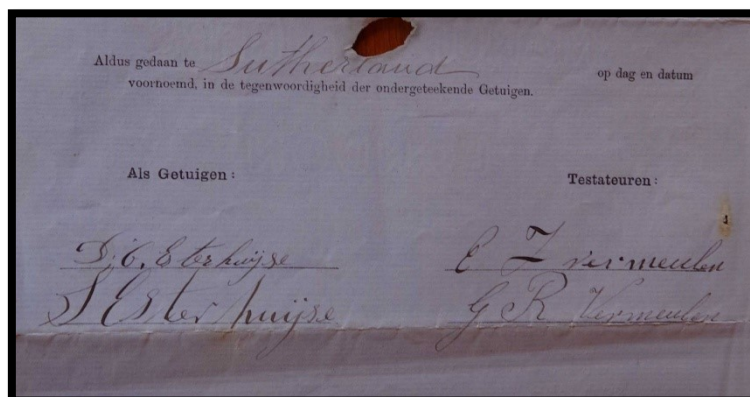 Aldus gedaan te Sutherland op dag en datum
voornoemd, in de tegenwoordigheid der ondergeteekende Getuigen.
Als Getuigen: Testateuren:
D. C. Esterhuijse E Z vermeulen
S Esterhuijse G R Vermeulen